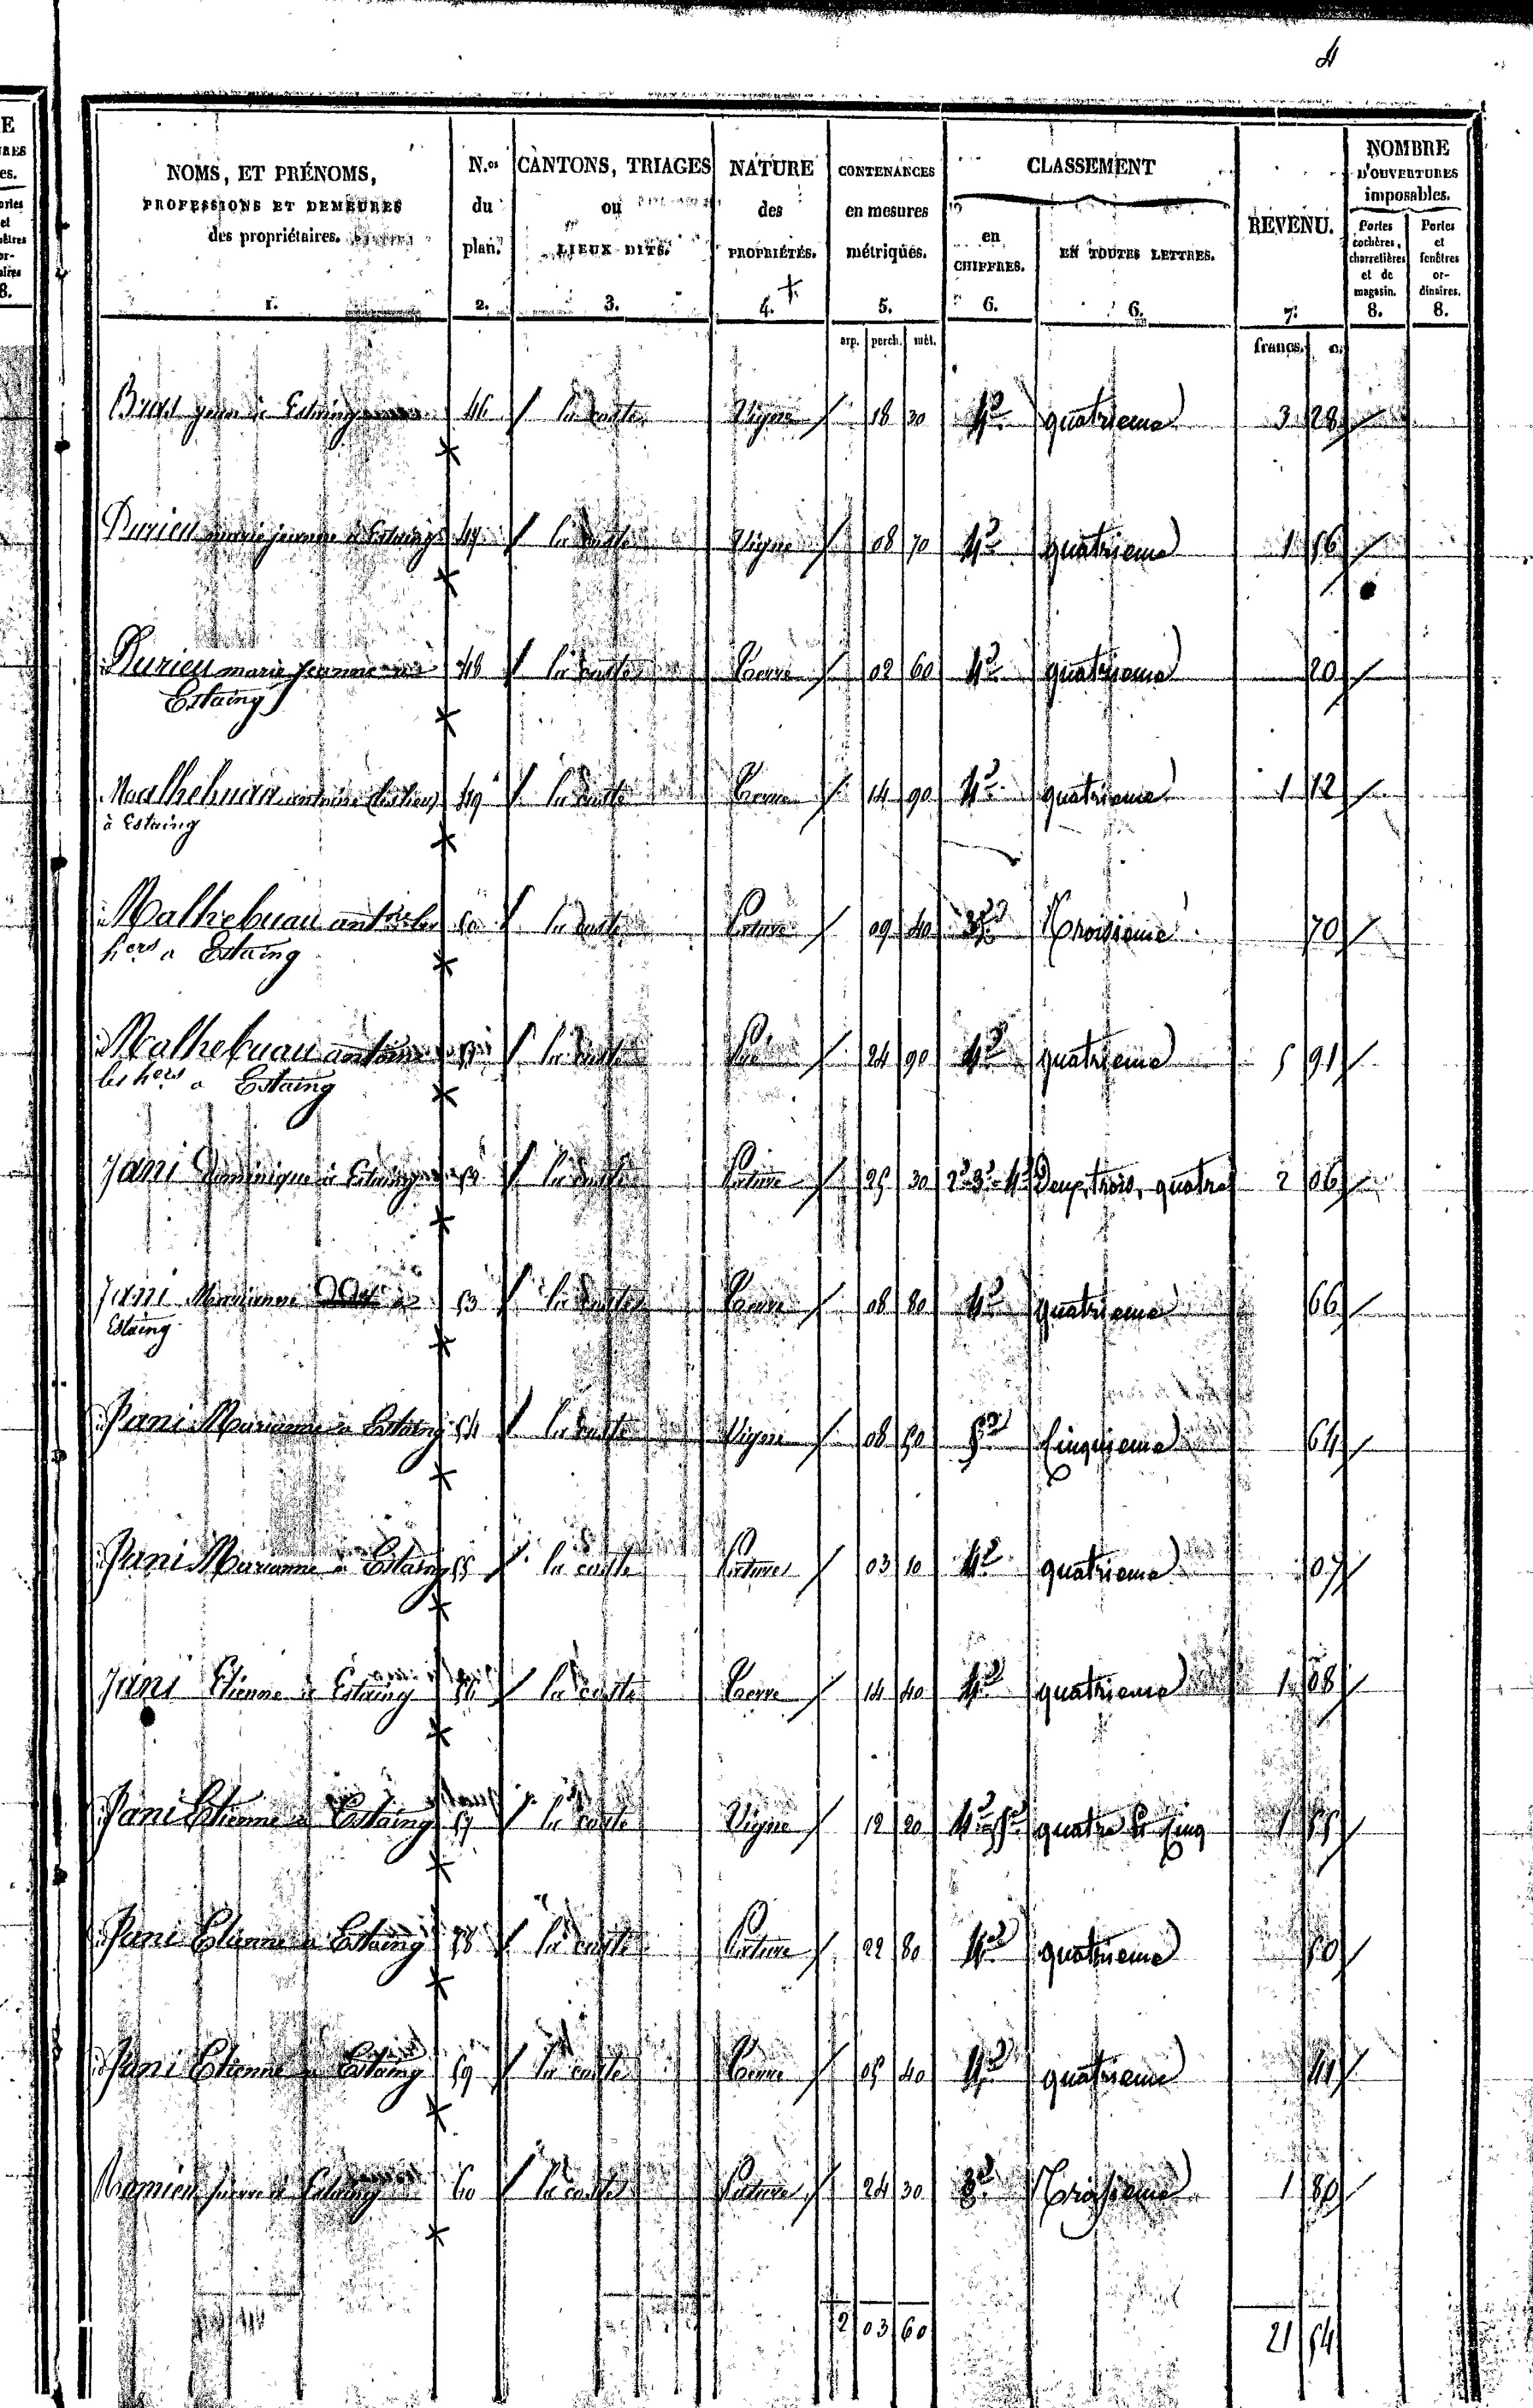 4
NOMS, ET PRÉNOMS, PROFESSIONS ET DEMEURES des propriétaires. 1.
N.os du plan. 2.
CANTONS, TRIAGES ou LIEUX DITS. 3.
NATURE des PROPRIÉTÉS. 4.
CONTENANCES en mesures métriques. 5.
CLASSEMENT
en CHIFFRES. 6.
EN TOUTES LETTRES. 6.
REVENU. 7.
NOMBRE D'OUVERTURES imposables.
Portes cochères, charretières et de magasin. 8.
Portes et fenêtres ordinaires. 8.
arp. perch. mèt. francs. c.
à Estaing 46 la coste Vigne 18 30 4e quatrieme 3 28
Durieu marie jeanne à Estaing 47 la coste Vigne 08 70 4e quatrieme 1 56
Durieu marie Jeanne à 48 la coste 02 60 4e quatrieme 20
Estaing
49 la coste 14 90 4e quatrieme 1 12
à Estaing
Malhebuau 50 la coste Pature 09 40 3e Troisieme 70
hers a Estaing
Malhebuau antoine 51 la coste Pré 24 90 4e quatrieme 5 91
les hers a Estaing
Jani Dominique à Estaing 52 la coste Pature 25 30 2e 3e 4e Deux, trois, quatre 2 06
Jani Marianne à 53 la coste 08 80 4e quatrieme 66
Estaing
Jani Marianne à Estaing 54 la coste Vigne 08 50 5e Cinquieme 64
Jani Marianne à Estaing 55 la coste Pature 03 10 4e quatrieme 07
Jani Etienne à Estaing 56 la coste 14 40 4e quatrieme 1 08
Jani Etienne à Estaing 57 la coste Vigne 12 20 4e 5e quatre Et Cinq 1
Jani Etienne à Estaing 58 la coste Pature 22 80 4e quatrieme 50
Jani Etienne à Estaing 59 la coste 05 40 4e quatrieme 41
à Estaing 60 la coste Pature 24 30 3e Troisieme 1 80
2 03 60 21 54